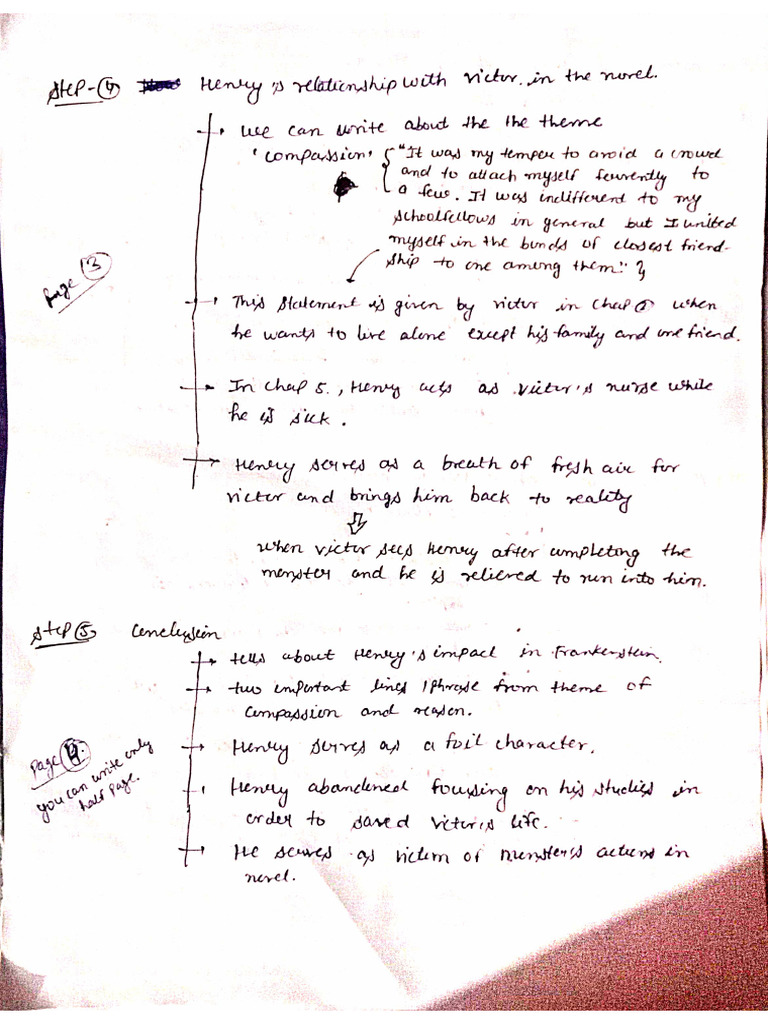 Step-④ Henry's relationship with victor in the novel.
→ we can write about the the theme
'compassion' { "It was my temper to avoid a crowd
and to attach myself fervently to
a few. It was indifferent to my
schoolfellows in general but I united
myself in the bunds of closest friend-
ship to one among them." }
page ③
→ This statement is given by victor in chap when
he wants to live alone except his family and one friend.
→ In chap 5., Henry acts as victor's nurse while
he is sick.
→ Henry serves as a breath of fresh air for
victor and brings him back to reality
⇩
when victor sees Henry after completing the
monster and he is relieved to run into him.
Step ⑤ Conclusion
→ tells about Henry's impact in Frankenstein.
→ two important lines / phrase from theme of
compassion and reason.
Page ④.
you can write only
half page.
→ Henry serves as a foil character.
→ Henry abandoned focusing on his studies in
order to saved victor's life.
→ He serves as victim of monster's actions in
novel.